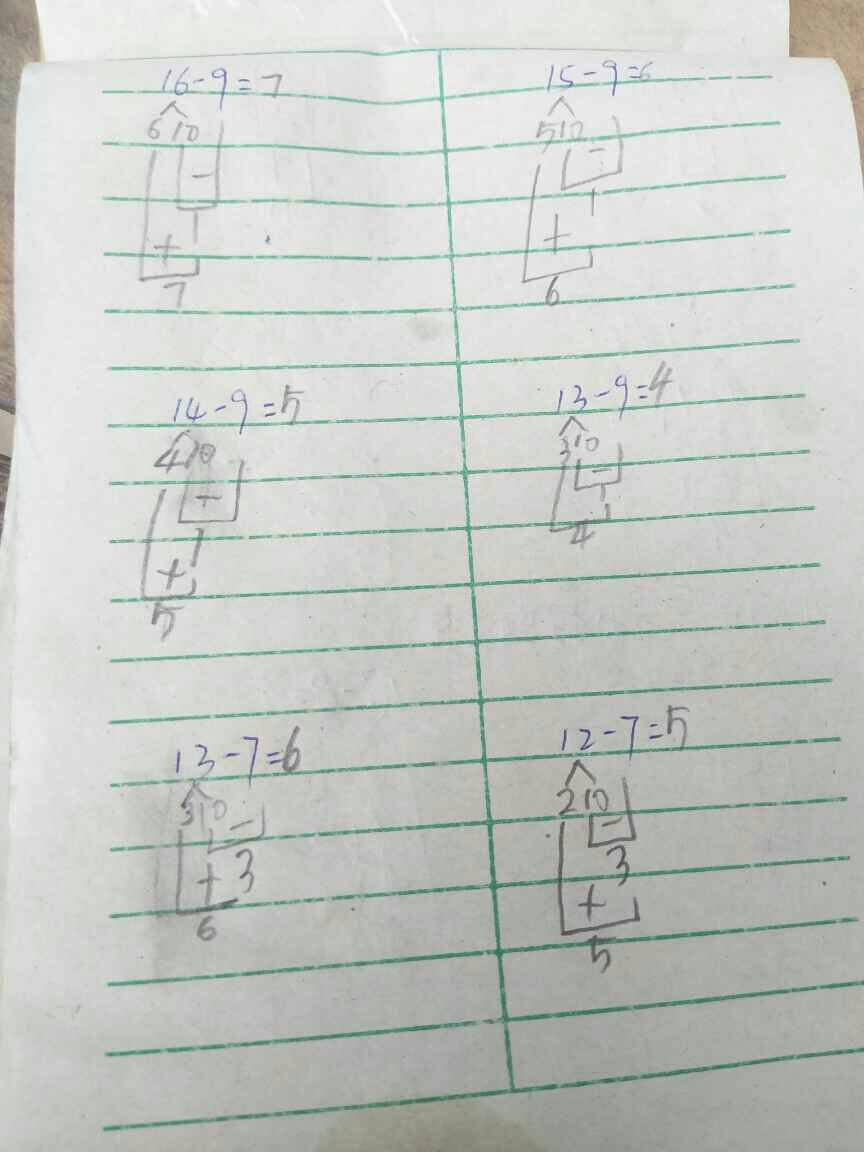 16-9=7 15-9=6
6 10 5 10
- -
1 1
+ +
7 6
14-9=5 13-9=4
4 10 3 10
- -
1 1
+ 4
5
13-7=6 12-7=5
3 10 2 10
- -
+ 3 3
6 +
5